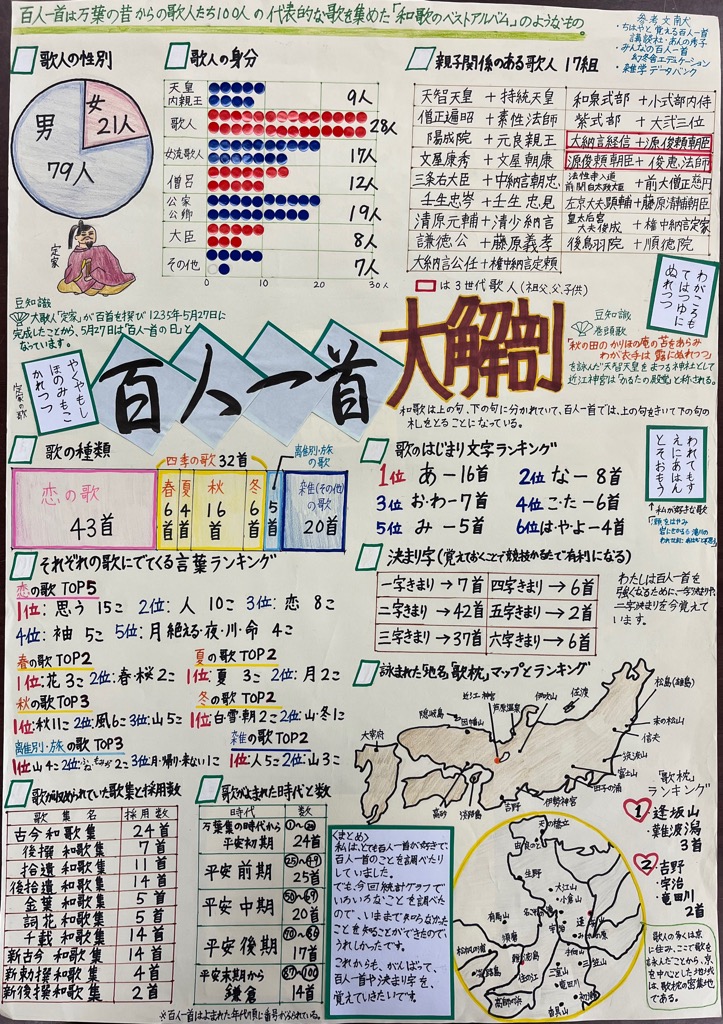 百人一首は万葉の昔からの歌人たち100人の代表的な歌を集めた「和歌のベストアルバム」のようなもの。
参考文献
・ちはやと覚える百人一首
講談社・あんの秀子
・みんなの百人一首
幻冬舎エデュケーション
・雑学データバンク
歌人の性別
女
21人
男
79人
定家
歌人の身分
天皇
内親王
9人
歌人
28人
女流歌人
17人
僧呂
12人
公家
公卿
19人
大臣
8人
その他
7人
0 10 20 30人
親子関係のある歌人 17組
天智天皇+持統天皇
和泉式部+小式部内侍
僧正遍昭+素性法師
紫式部+大弐三位
陽成院+元良親王
大納言経信+源俊頼朝臣
文屋康秀+文屋朝康
源俊頼朝臣+俊恵法師
三条右大臣+中納言朝忠
法性寺入道
前関白太政大臣+前大僧正慈円
壬生忠岑+壬生忠見
左京大夫顕輔+藤原清輔朝臣
清原元輔+清少納言
皇太后宮
大夫俊成+権中納言定家
謙徳公+藤原義孝
後鳥羽院+順徳院
大納言公任+権中納言定頼
は3世代歌人(祖父、父、子供)
わがころも
てはつゆに
ぬれつつ
豆知識
大歌人「定家」が百首を撰び1235年5月27日に
完成したことから、5月27日は「百人一首の日」と
なっています。
定家の歌
やくやもし
ほのみもこ
がれつつ
百人一首
大解剖
豆知識
巻頭歌
「秋の田のかりほの庵の苫をあらみ
わが衣手は露にぬれつつ」
を詠んだ天智天皇をまつる神社として
近江神宮は「かるたの殿堂」と称される。
和歌は上の句、下の句に分かれていて、百人一首では、上の句をきいて下の句の
札をとることになっている。
歌の種類
四季の歌32首
離別・旅
の歌
恋の歌
43首
春
6首
夏
4首
秋
16首
冬
6首
5首
雑(その他)
の歌
20首
歌のはじまり文字ランキング
1位 あ―16首
2位 な―8首
3位 お・わ―7首
4位 こ・た―6首
5位 み―5首
6位 は・や・よ―4首
われても
すえにあはむ
とぞおもふ
↑私が好きな歌
それぞれの歌にでてくる言葉ランキング
恋の歌TOP5
1位:思う 15こ 2位:人 10こ 3位:恋 8こ
4位:袖 5こ 5位:月・絶える・夜・川・命 4こ
春の歌TOP2
1位:花3こ 2位:春・桜2こ
夏の歌TOP2
1位:夏 3こ 2位:月2こ
秋の歌TOP3
1位:秋11こ 2位:風6こ 3位:山5こ
冬の歌TOP2
1位:白・雪・朝2こ 2位:山・冬1こ
離別・旅の歌TOP3
1位:山4こ
3位:月・帰り・来ない1こ
雑の歌TOP2
1位:人5こ 2位:山3こ
決まり字(覚えておくことで競技かるたで有利になる)
一字きまり→7首
四字きまり→6首
二字きまり→42首
五字きまり→2首
三字きまり→37首
六字きまり→6首
わたしは百人一首を
強くなるために、一字決まりや、
二字決まりを今覚えて
います。
詠まれた「地名」「歌枕」マップとランキング
近江神宮
芦原温泉
伊吹山
佐渡
松島(雄島)
末の松山
信夫
筑波山
富士山
田子の浦
伊勢神宮
吉野
淡路島
高砂
大宰府
隠岐島
因幡山
「歌枕」
ランキング
1 逢坂山
・難波潟
3首
2 吉野
・宇治
・竜田川
2首
天の橋立
由良の戸
生野
大江山
小倉山
有馬山
須磨
宇治
逢坂山
松帆の浦
淡路島
難波潟
住の江
三室山
三笠山
竜田川
高師の浜
初瀬
吉野
歌人の多くは京
に住み、ここで歌を
詠んだことから、京
を中心とした地域
は、歌枕の密集地
である。
歌が収められていた歌集と採用数
歌集名 採用数
古今和歌集 24首
後撰和歌集 7首
拾遺和歌集 11首
後拾遺和歌集 14首
金葉和歌集 5首
詞花和歌集 5首
千載和歌集 14首
新古今和歌集 14首
新勅撰和歌集 4首
新後撰和歌集 2首
歌がよまれた時代と数
時代 数
万葉集の時代から
平安初期
24首
平安前期
25〜49
25首
平安中期
50〜69
20首
平安後期
70〜86
17首
平安末期から
鎌倉
87〜100
14首
※百人一首はよまれた年代の順に番号がふられている。
〈まとめ〉
私は、とても百人一首が好きで、
百人一首のことを調べたり
していました。
でも、今回統計グラフで
いろいろなことを調べた
ので、いままで知らなかった
ことを知ることができたので、
うれしかったです。
これからも、がんばって、
百人一首や決まり字を、
覚えていきたいです。